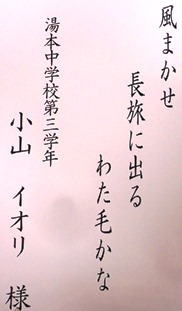 風まかせ
長旅に出る
わた毛かな
湯本中学校第三学年
小山 イオリ 様